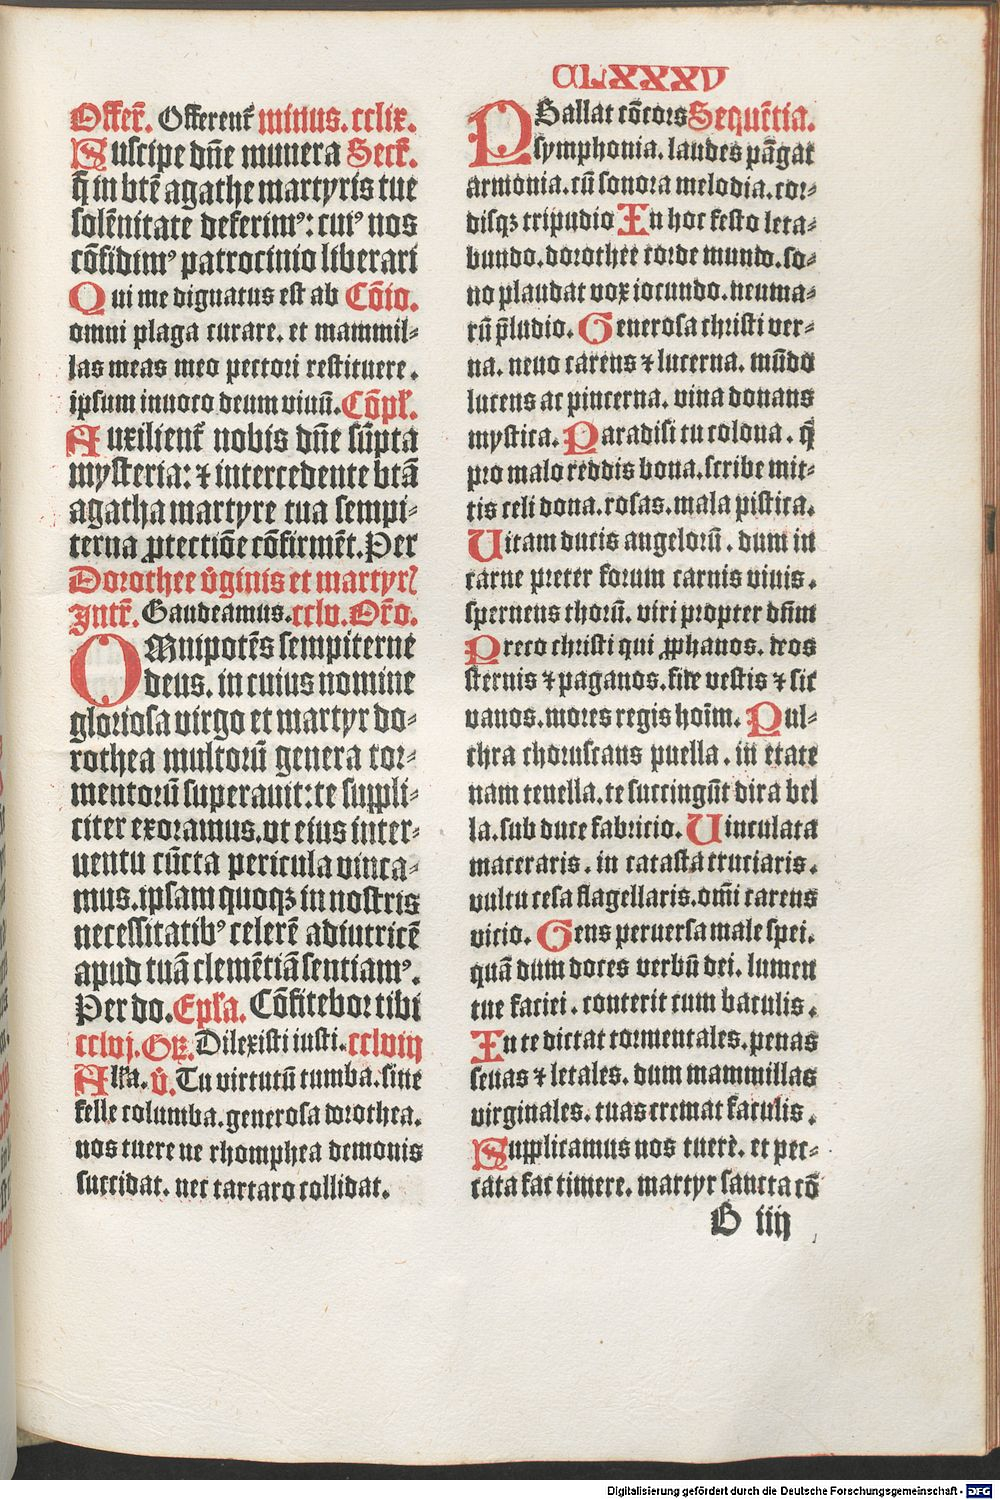 CLXXXV
Offer̄. Offerent᷑ minus. cclix.
Suscipe dn̄e munera Secr̄.
q̄ in bt̄e agathe martyris tue
solēnitate deferimꝰ: cuiꝰ nos
cōfidimꝰ patrocinio liberari
Qui me dignatus est ab Cōio.
omni plaga curare. et mammil⸗
las meas meo pectori restituere.
ipsum inuoco deum viuū. Cōpl̄.
Auxilient᷑ nobis dn̄e sūpta
mysteria: ⁊ intercedente btā
agatha martyre tua sempi⸗
terna ꝓtectiōe cōfirmēt. Per
Dorothee v̄ginis et martyrꝭ
Intr̄. Gaudeamus. cclv. Or̄o.
OMnipotēs sempiterne
deus. in cuius nomine
gloriosa virgo et martyr do⸗
rothea multorū genera tor⸗
mentorū superauit: te suppli⸗
citer exoramus. vt eius inter⸗
uentu cūcta pericula vinca⸗
mus. ipsam quoqꝫ in nostris
necessitatibꝰ celerē adiutricē
apud tuā clemētiā sentiamꝰ.
Per do. Epl̄a. Cōfitebor tibi
cclvj. Gr̄. Dilexisti iusti. cclviij
Alla. v̄. Tu virtutū tumba. sine
felle columba. generosa dorothea.
nos tuere ne rhomphea demonis
succidat. nec tartaro collidat.
PSallat cōcors Sequētia.
symphonia. laudes pāgat
armonia. cū sonora melodia. cor⸗
disqꝫ tripudio In hoc festo leta⸗
bundo. dorothee corde mundo. so⸗
no plaudat vox iocundo. neuma⸗
rū p̄ludio. Generosa christi ver⸗
na. neuo carens ⁊ lucerna. mūdo
lucens ac pincerna. vina donans
mystica. Paradisi tu colona. q̄
pro malo reddis bona. scribe mit⸗
tis celi dona. rosas. mala pistica.
Uitam ducis angelorū. dum in
carne preter forum carnis viuis.
spernens thorū. viri propter dn̄m
Preco christi qui ꝓphanos. deos
sternis ⁊ paganos. fide vestis ⁊ sic
vanos. mores regis hoīm. Pul⸗
chra choruscans puella. in etate
nam tenella. te succingūt dira bel
la. sub duce fabricio. Uinculata
maceraris. in catasta cruciaris.
vultu cesa flagellaris. om̄i carens
vicio. Gens peruersa male spei.
quā dum doces verbū dei. lumen
tue faciei. conterit cum baculis.
In te dictat tormentales. penas
seuas ⁊ letales. dum mammillas
virginales. tuas cremat faculis.
Supplicamus nos tuere. et pec⸗
cata fac timere. martyr sancta cō
B iiij
Digitalisierung gefördert durch die Deutsche Forschungsgemeinschaft - DFG